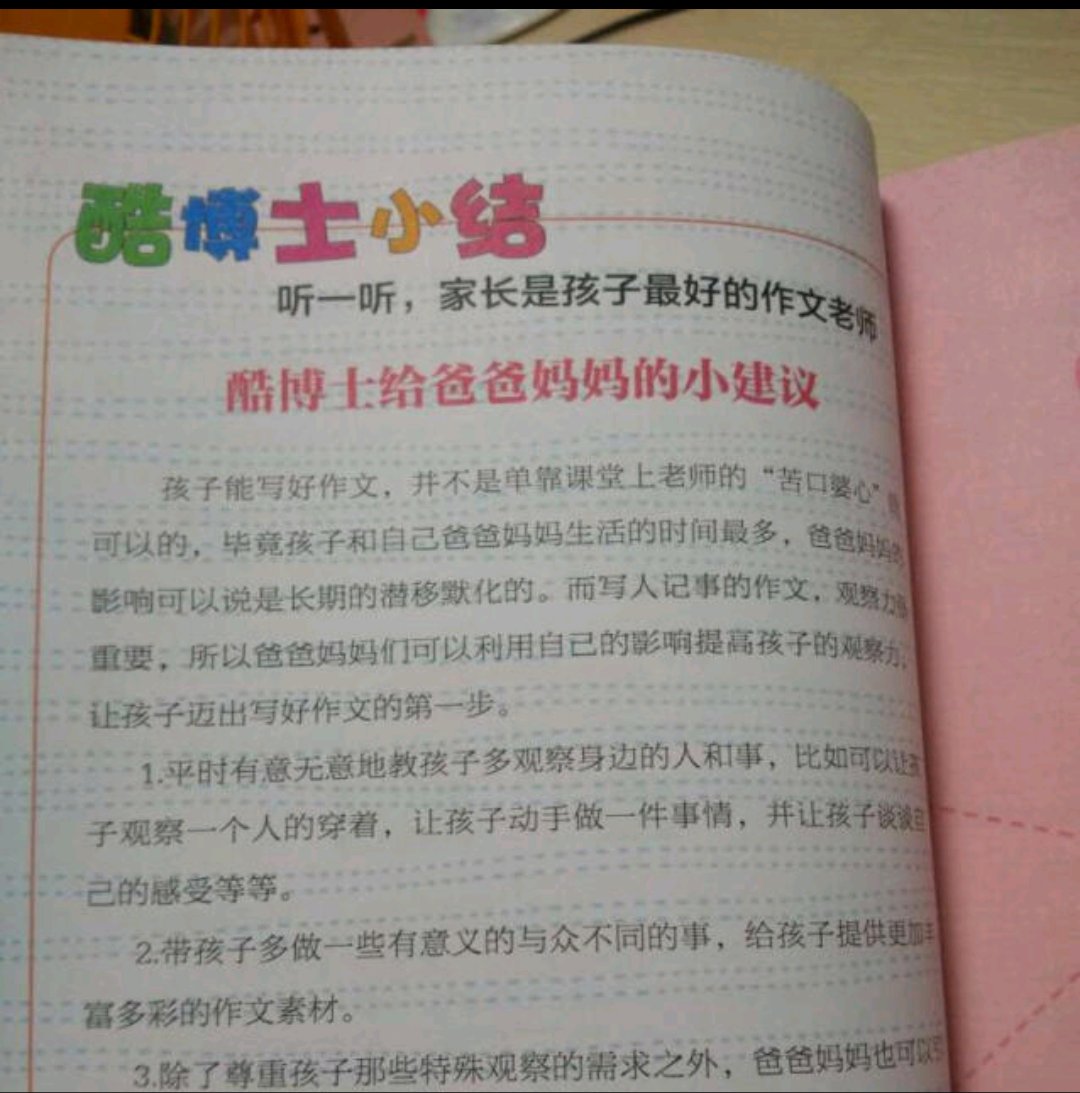 酷博士小结
听一听，家长是孩子最好的作文老师
酷博士给爸爸妈妈的小建议
孩子能写好作文，并不是单靠课堂上老师的“苦口婆心”
可以的，毕竟孩子和自己爸爸妈妈生活的时间最多，爸爸妈妈
影响可以说是长期的潜移默化的。而写人记事的作文，观察力
重要，所以爸爸妈妈们可以利用自己的影响提高孩子的观察力，
让孩子迈出写好作文的第一步。
1.平时有意无意地教孩子多观察身边的人和事，比如可以让孩
子观察一个人的穿着，让孩子动手做一件事情，并让孩子谈谈自
己的感受等等。
2.带孩子多做一些有意义的与众不同的事，给孩子提供更加丰
富多彩的作文素材。
3.除了尊重孩子那些特殊观察的需求之外，爸爸妈妈也可以